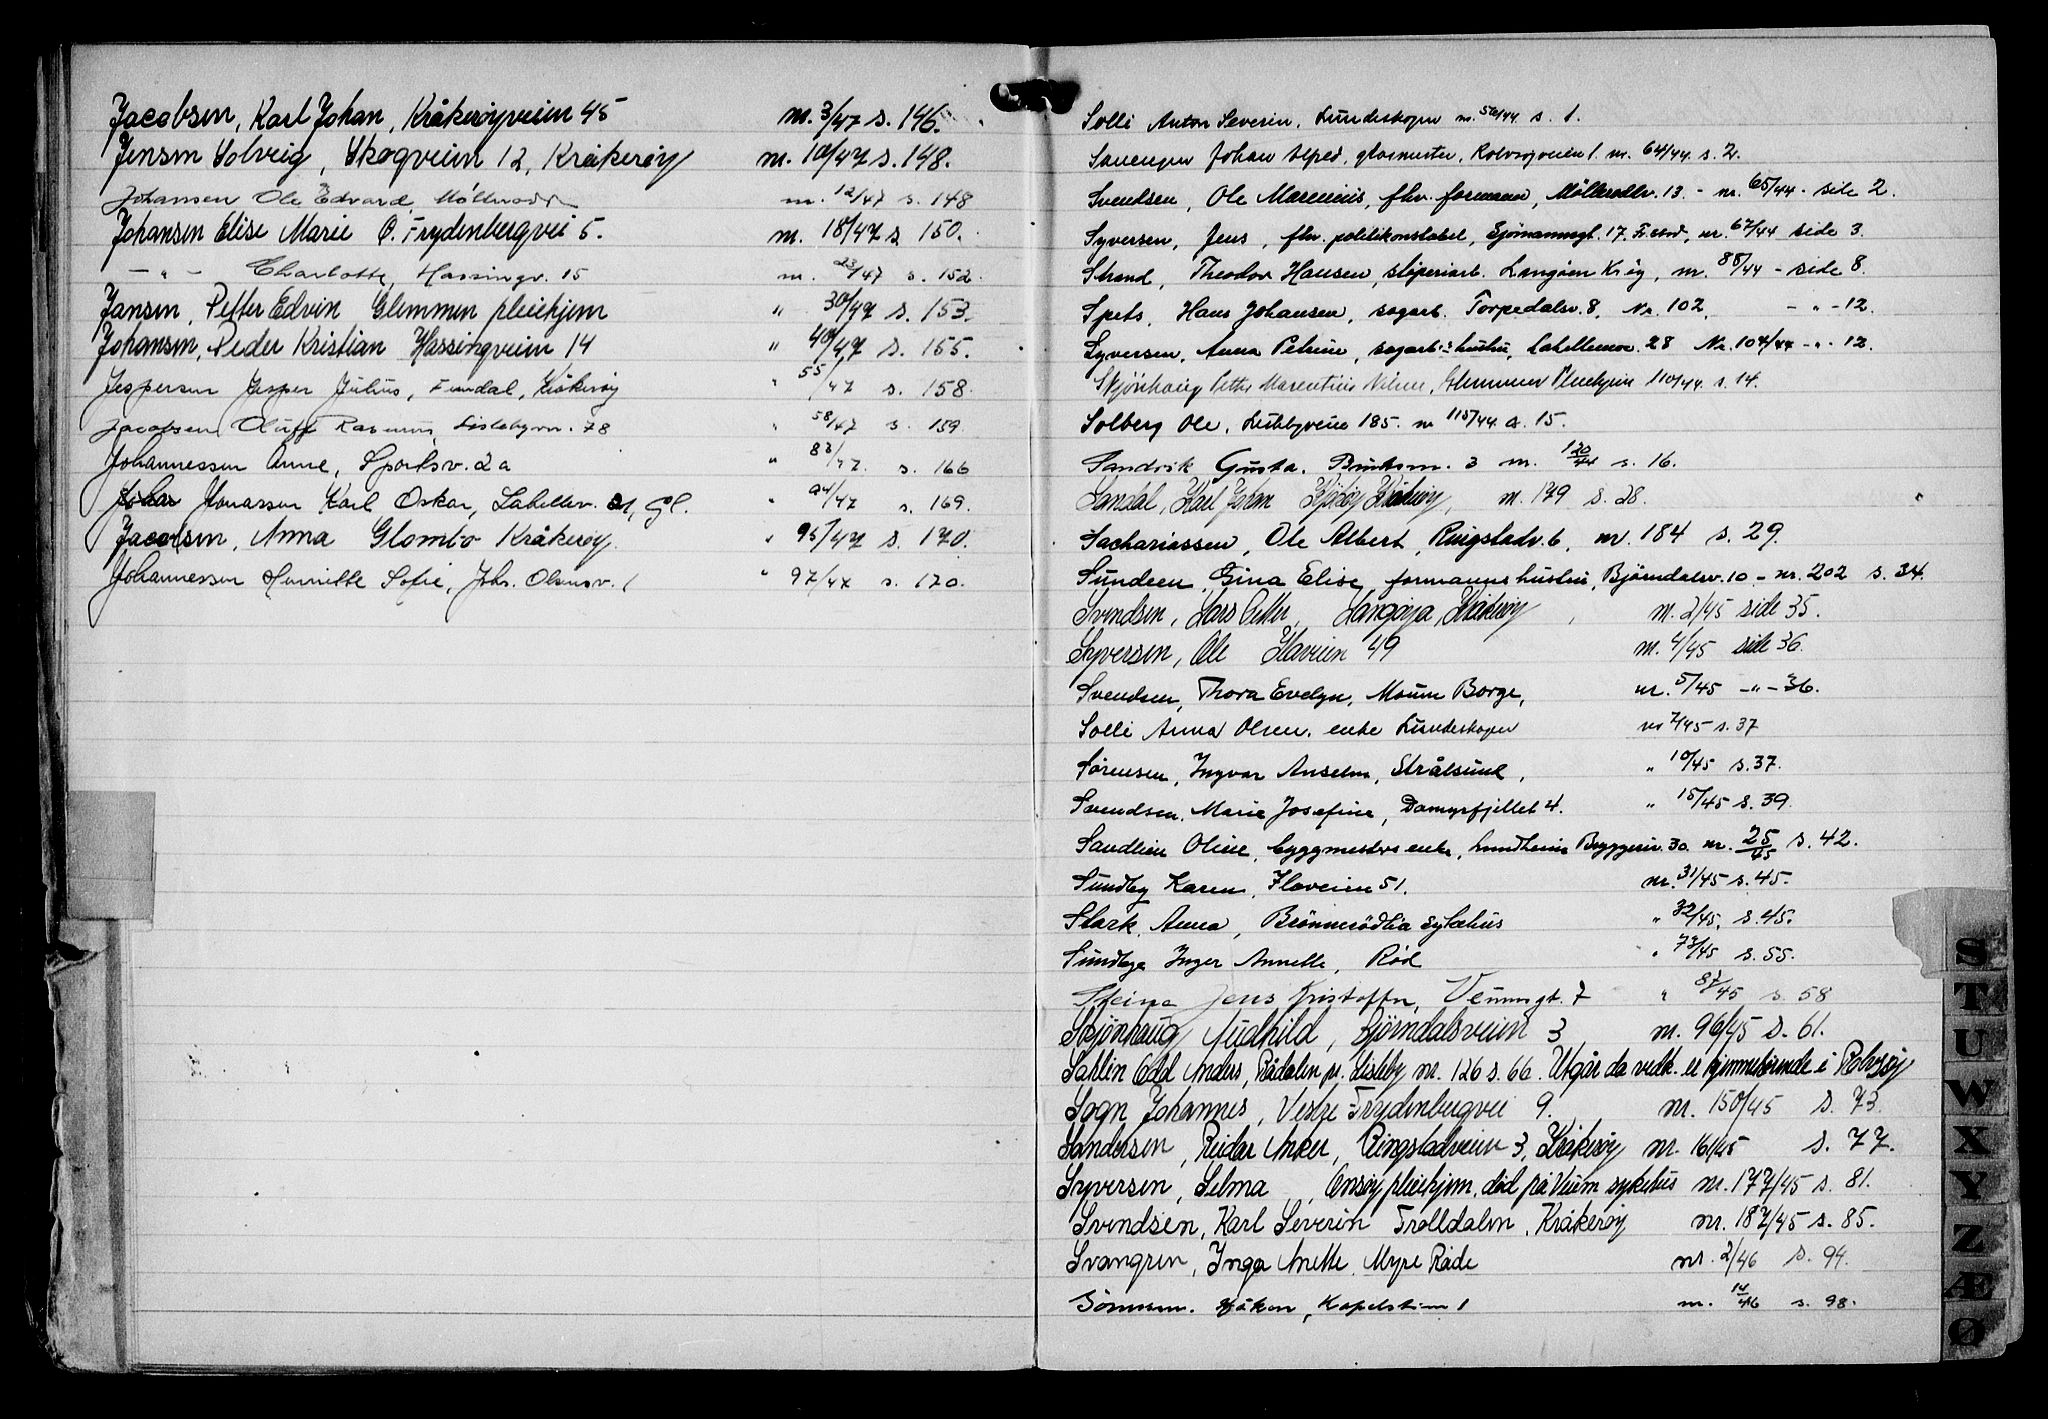 Jacobsen, Karl Johan, Kråkerøyveien 45 nr. 3/47 s. 146.
Jensen Solveig, Skogveien 12, Kråkerøy nr. 10/47 s. 148.
Johansen Ole Edvard, nr. 12/47 s. 148
Johansen Elise Marie Ø. Frydenbergvei 5. nr. 18/47 s. 150.
— " — Charlotte, Hassingv. 15 nr. 23/47 s. 152
Jansen, Petter Edvin Glemmen pleiehjem " 30/47 s. 153.
Johansen, Peder Kristian Hassingveien 14 " 40/47 s. 155.
Jespersen Jesper Julius, Kråkerøy " 55/47 s. 158.
Jacobsen Oluff Rasmus, Lislebyvn. 78 " 58/47 s. 159
Johannessen Anne, Sportsv. 2a " 83/47. s. 166
Jonassen Karl Oskar, Labellsv. 21, Gl. " 94/47 s. 169.
Jacobsen, Anna Glombo Kråkerøy. " 95/47 s. 170.
Johannessen Henriette Sofie, Johs. Olsensv. 1 " 97/47 s. 170.
Solli Anton Severin, Lundeskogen nr. 56/44 s. 1.
Johan Alfred, glasmester, Rolvsøyveien 1. nr. 64/44. s. 2.
Svendsen, Ole Marenius, fhv. formann, Møllerodv. 13. - nr. 65/44 - side 2.
Syversen, Jens, fhv. politikonstabel, Sjømannsgt. 17. nr. 67/44 side 3.
Strand, Theodor Hansen, støperiarb. Langøen Kråg, nr. 88/44 - side 8.
Spets, Hans Johansen, sagarb. Torpedalsv. 8, Nr. 102, - " - 12.
Syversen, Anna Petrine, sagarb.s hustru, Labellsv. 28 Nr. 104/44 - " - 12.
Skjönhaug Petter Marentius Nilsen, Glemmen Pleiehjem 110/44. s. 14.
Solberg Ole, Lislebyveien 185. nr 115/44. s. 15.
Sandvik Gusta. 3 nr. 120/44 s. 16.
Sandal, Karl Johan Kjøkøy Kråkerøy, nr. 179 s. 28.
Sachariassen, Ole Albert, Ringstadv. 6, nr. 184 s. 29.
Sundeen, Gina Elise, formanns hustru, Bjørndalsv. 10 - nr. 202 s. 34.
Svendsen, Lars Petter, Langøya, Kråkerøy, nr. 2/45 side 35.
Syversen, Ole Haveien 49 nr. 4/45 side 36.
Svendsen, Thora Evelyn, Moum Borge, nr. 5/45 - " - 36.
Solli Anna Olsen, enke Lundeskogen nr 7/45 s. 37
Sørensen, Ingvar Anselm, Strålsund, " 10/45 s. 37.
Svendsen, Marie Josefine, Damyrfjellet 4. " 15/45 s. 39.
Sandlien Oline, byggmesters enke, Lundheim Bryggeriv. 30 nr. 25/45 s. 42.
Sundby Karen, Haveien 51. nr. 31/45 s. 45.
Stark, Anna, Brønnerødlia sykehus " 32/45. s. 45.
Sundbye Inger Annette, Rød " 73/45 s. 55.
Steina Jens Kristoffer, Veumsgt. 7 " 87/45 s. 58
Skjønhaug Audhild, Bjørndalsveien 3 nr. 96/45 s. 61.
Sahlin Odd Anders, Rådalen pr. Lisleby nr. 126 s. 66. Utgår da vedk. er hjemmehørende i Rolvsøy
Sogn Johannes, Vestre Frydenbergvei 9. nr. 150/45 s. 73.
Sandersen, Reidar Anker, Ringstadveien 3, Kråkerøy nr. 161/45 s. 77.
Syversen, Selma, Onsøy pleiehjem, død på Veum sykehus nr. 177/45 s. 81.
Svendsen, Karl Severin Trolldalen, Kråkerøy nr. 187/45 s. 85.
Svangren, Inga Anette, Myre Råde nr. 2/46 s. 94.
Sörensen, Håkon, Kapelstien 1 nr. 14/46 s. 98.
S
T
U
W
X
Y
Z
Æ
Ø